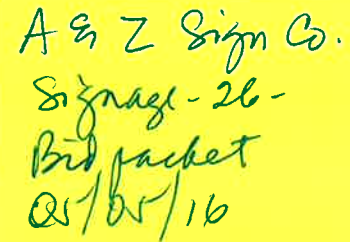 A & Z Sign Co.
Signage - 26 -
Bid packet
05/05/16